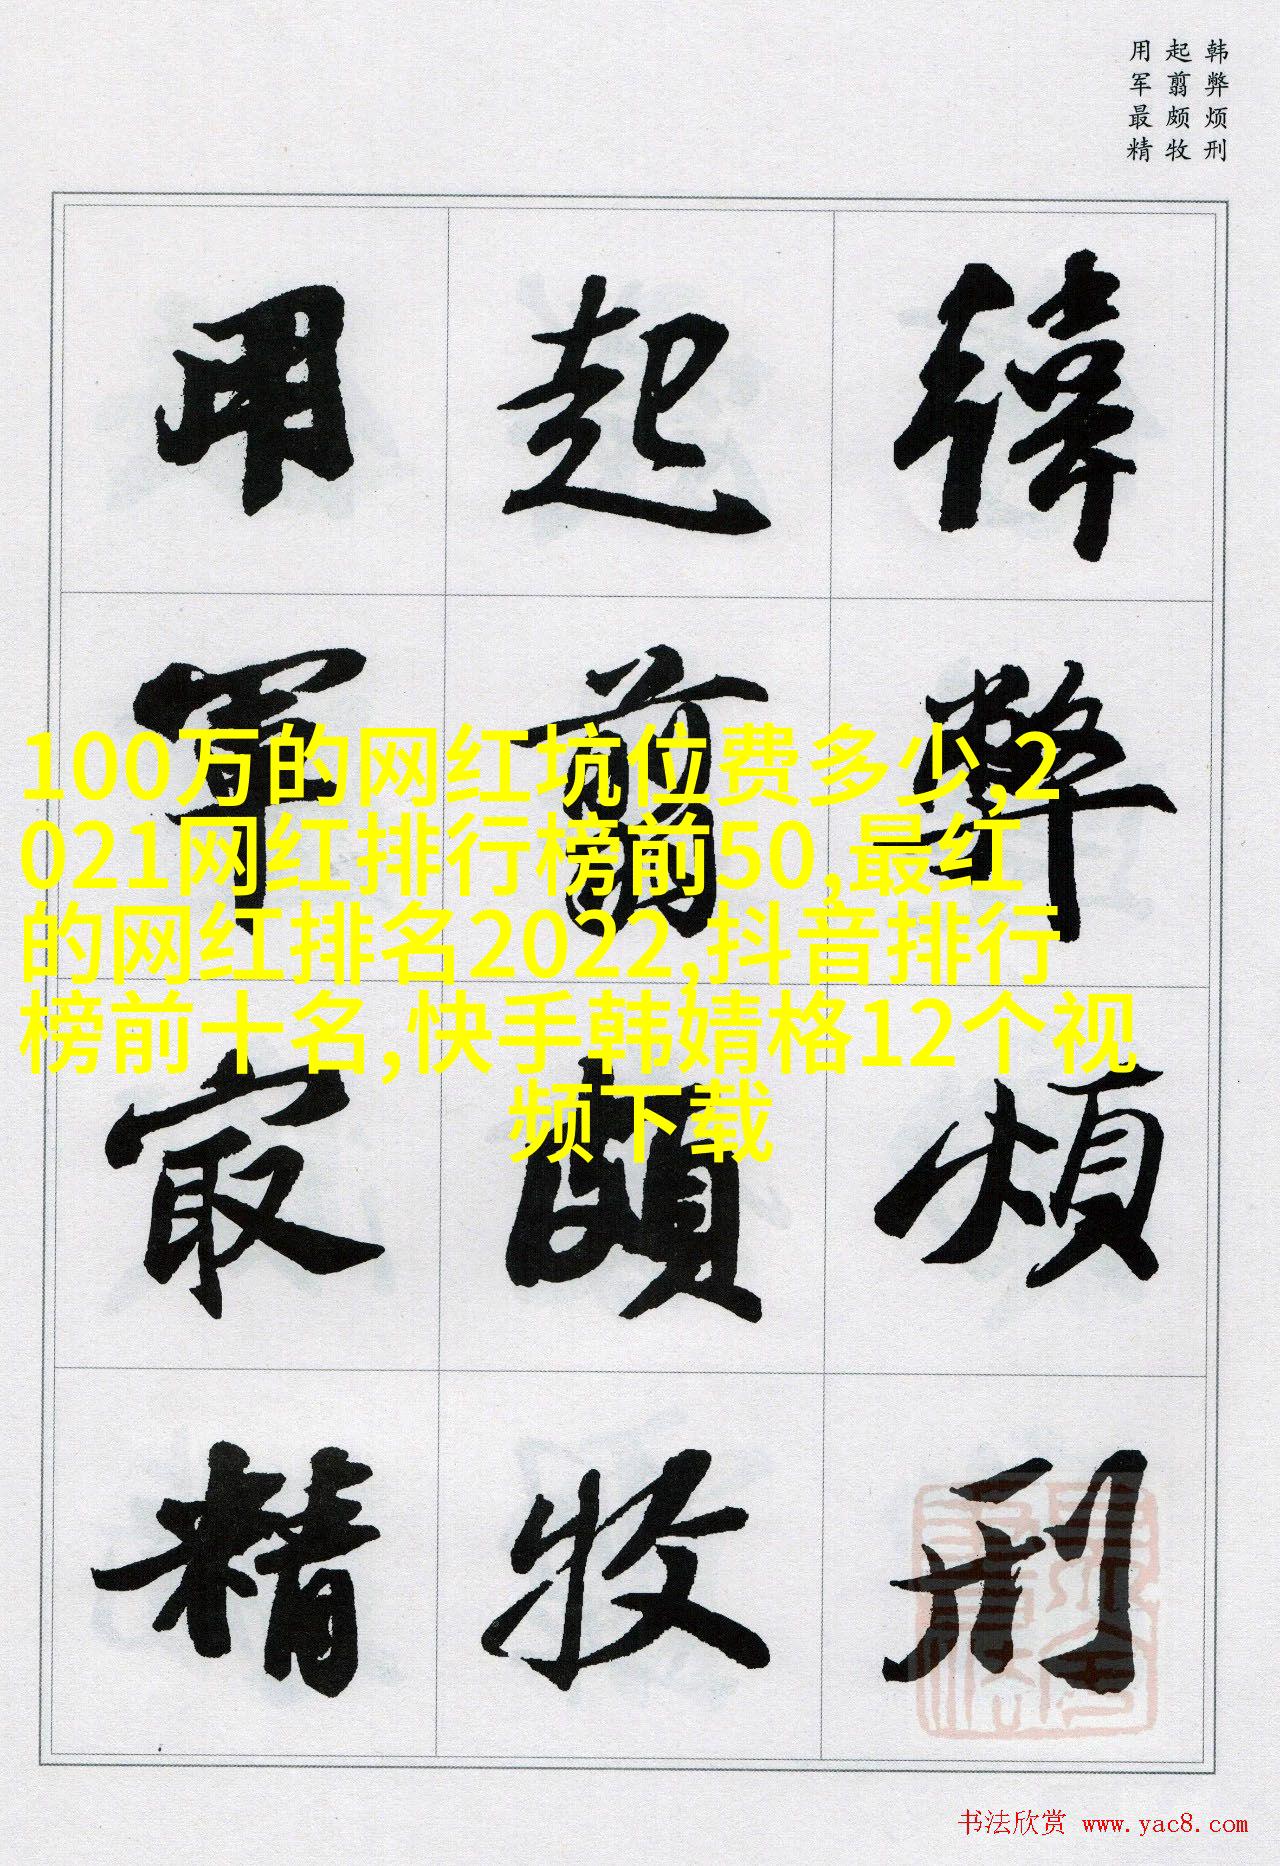 韩弊烦刑
起翦颇牧
用军最精
韩弊烦刑
起翦颇牧
用军最精
100万的网红坑位费多少,2
021网红排行榜前50,最红
的网红排名2022,抖音排行
榜前十名,快手韩婧格12个视
频下载
书法欣赏 www.yac8.com